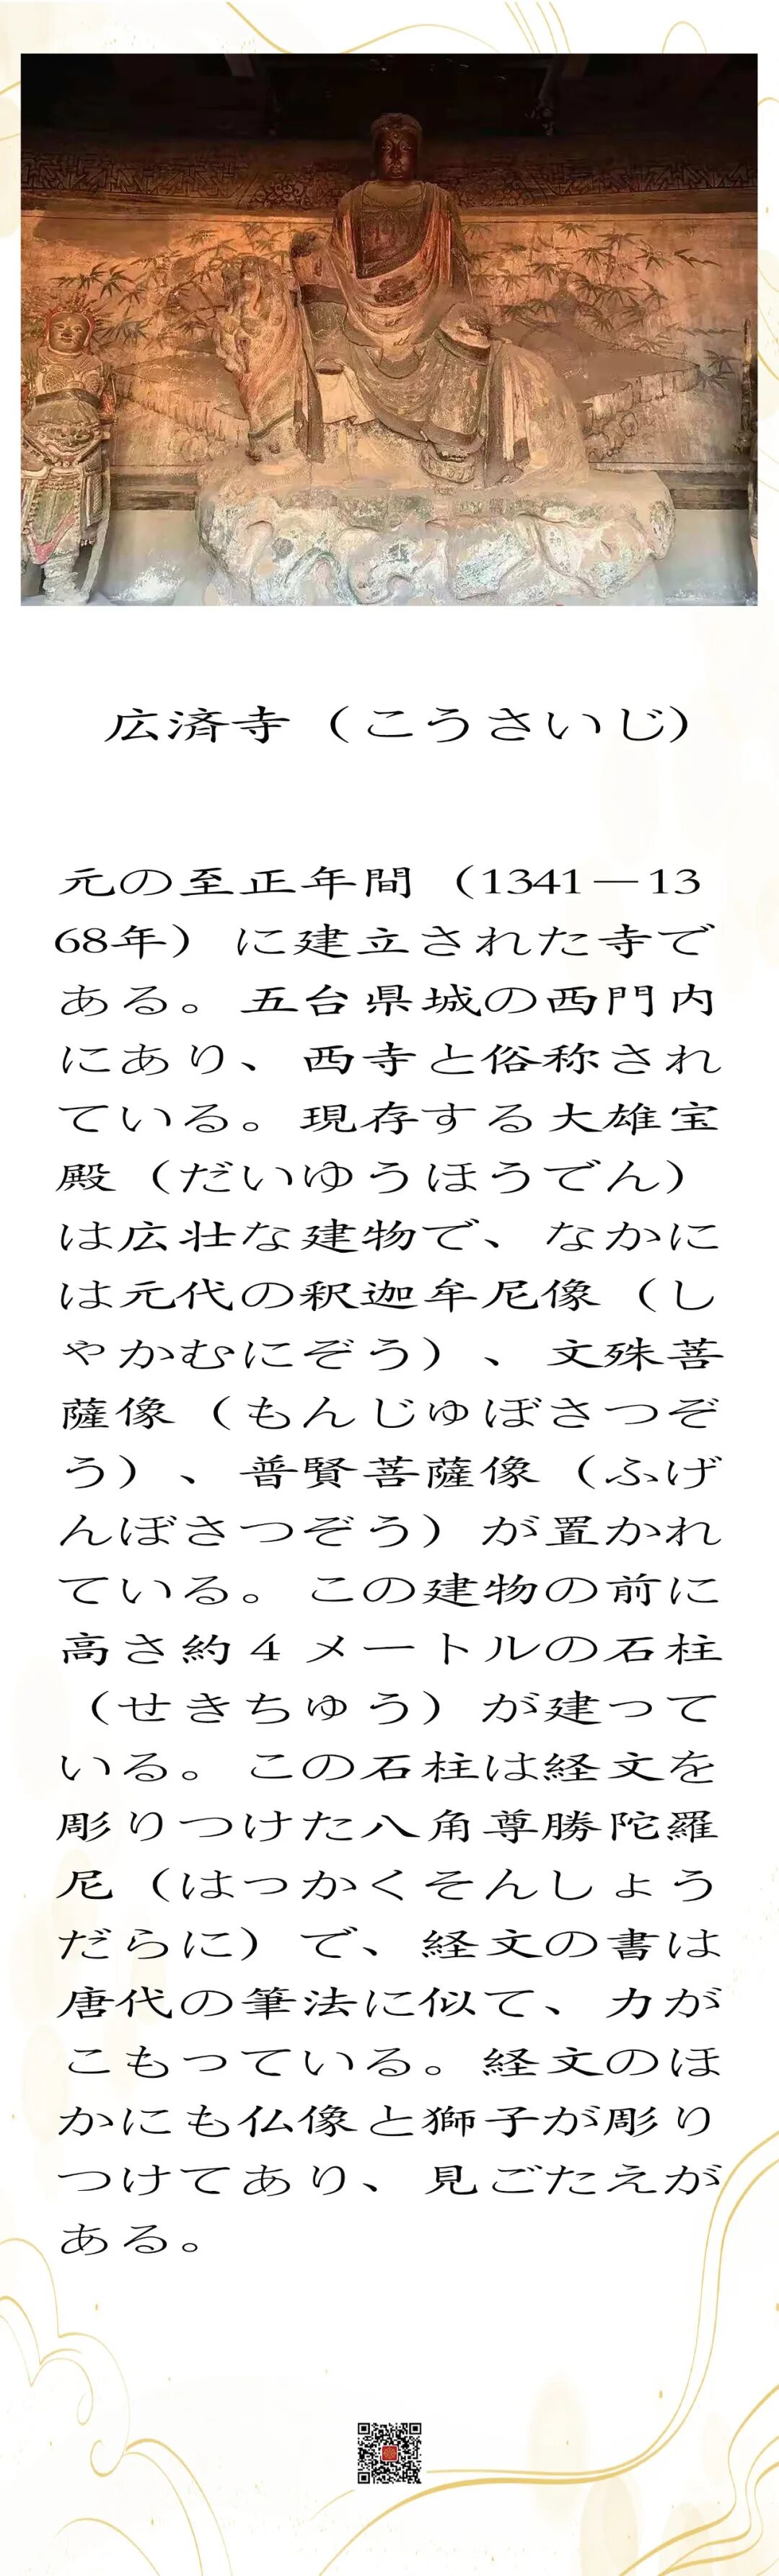 広済寺（こうさいじ）
元の至正年間（1341－13
68年）に建立された寺で
ある。五台県城の西門内
にあり、西寺と俗称され
ている。現存する大雄宝
殿（だいゆうほうでん）
は広壮な建物で、なかに
は元代の釈迦牟尼像（し
やかむにぞう）、文殊菩
薩像（もんじゅぼさつぞ
う）、普賢菩薩像（ふげ
んぼさつぞう）が置かれ
ている。この建物の前に
高さ約4メートルの石柱
（せきちゆう）が建って
いる。この石柱は経文を
彫りつけた八角尊勝陀羅
尼（はっかくそんしょう
だらに）で、経文の書は
唐代の筆法に似て、力が
こもっている。経文のほ
かにも仏像と獅子が彫り
つけてあり、見ごたえが
ある。